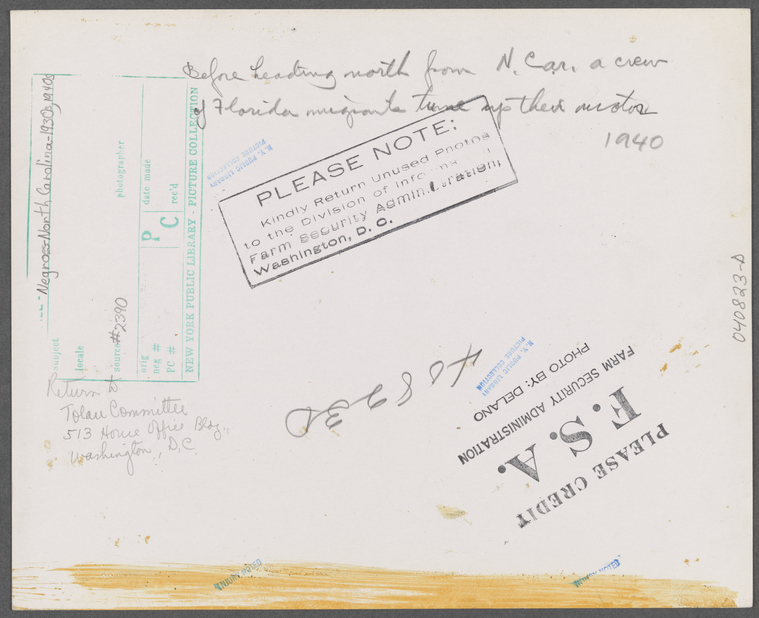 Before heading north from N. Car. a crew
of Florida migrants tune up their motor
1940
PLEASE NOTE:
Kindly Return Unused Photos
to the Division of
Farm Security Administration
Washington, D. C.
N. Y. PUBLIC LIBRARY
PICTURE COLLECTION
subject Negroes-North Carolina-1930s, 1940s
locale
source #2390 photographer
orig P date made
neg #
PC # C rec'd
NEW YORK PUBLIC LIBRARY - PICTURE COLLECTION
Return to
Tolan Committee
513 House Office Bldg.,
Washington, D.C.
40823D
N. Y. PUBLIC LIBRARY
PICTURE COLLECTION
PLEASE CREDIT
F. S. A.
FARM SECURITY ADMINISTRATION
PHOTO BY: DELANO
040823-D